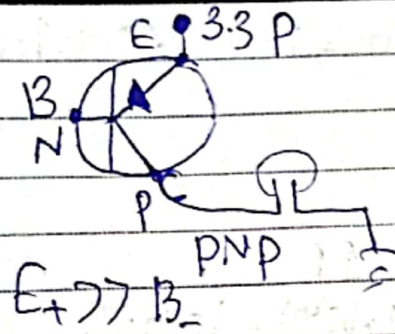 E 3.3 P
B
N
P
PNP
E+ >> B-